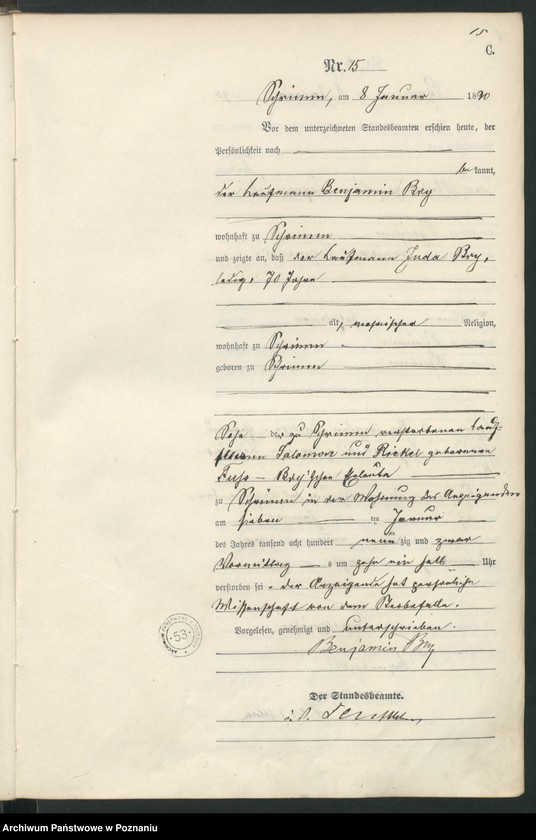 15
C.
Nr. 15
Schrimm, am 8 Januar 1890
Vor dem unterzeichneten Standesbeamten erschien heute, der
Persönlichkeit nach
be kannt,
der Kaufmann Benjamin Bry
wohnhaft zu Schrimm
und zeigte an, daß der Kaufmann Juda Bry,
ledig, 70 Jahre
alt, mosaischer Religion,
wohnhaft zu Schrimm
geboren zu Schrimm
Sohn der zu Schrimm verstorbenen Kauf-
mann Salomon und Rickel geborenen
Bry'schen Eheleute
zu Schrimm in der Wohnung des Anzeigenden
am sieben ten Januar
des Jahres tausend acht hundert neun zig und zwar
Vormittag s um zehn ein halb Uhr
verstorben sei. der Anzeigende hat persönliche
Wissenschaft von dem Sterbefalle.
Vorgelesen, genehmigt und unterschrieben.
Benjamin Bry
Der Standesbeamte.
53
Archiwum Państwowe w Poznaniu